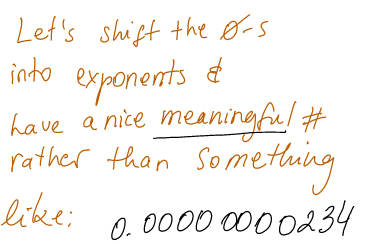 Let's shift the 0-s
into exponents &
have a nice meaningful #
rather than something
like: 0.00000000234